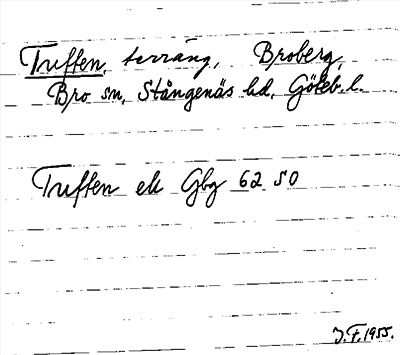 Tuffen, terräng, Broberg,
Bro sn, Stångenäs hd, Göteb. l.
Tuffen ek Gbg 62 SO
J. F. 1955.